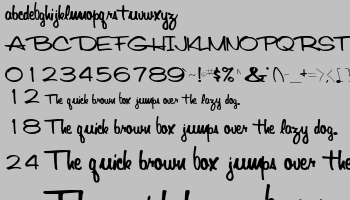 abcdefghijklmnopqrstuvwxyz
ABCDEFGHIJKLMNOPQRST
0123456789
12 The quick brown box jumps over the lazy dog.
18 The quick brown box jumps over the lazy dog.
24 The quick brown box jumps over the